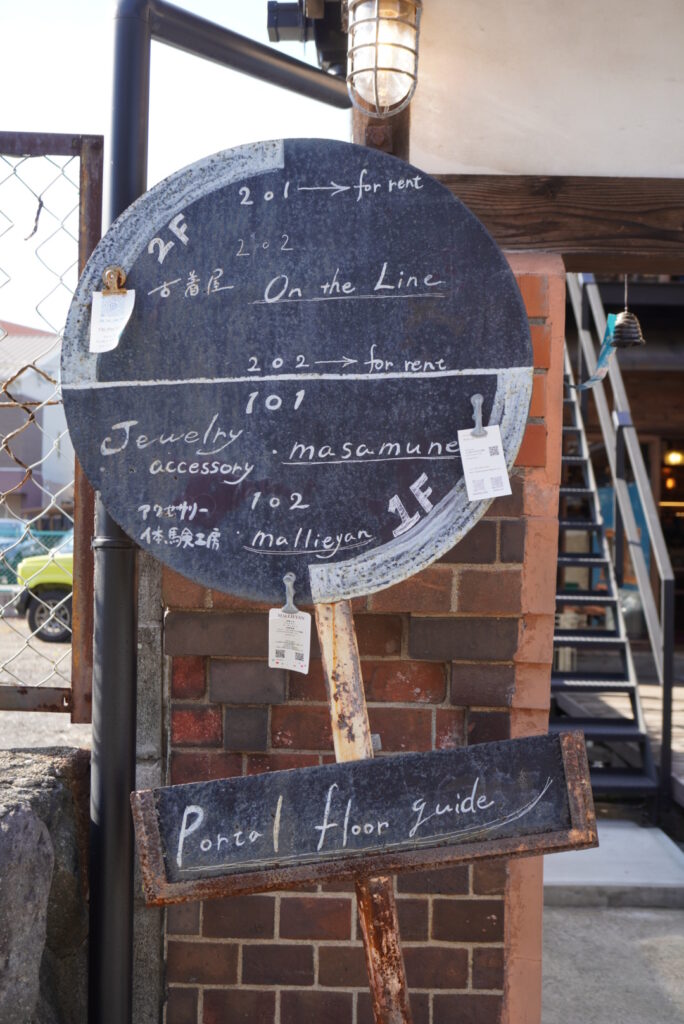 2F
201 → for rent
202
古着屋 On the Line
202 → for rent
101
Jewelry accessory ・masamune
102
アクセサリー
体験工房・mallieyan
1F
MALLIEYAN
Portal floor guide